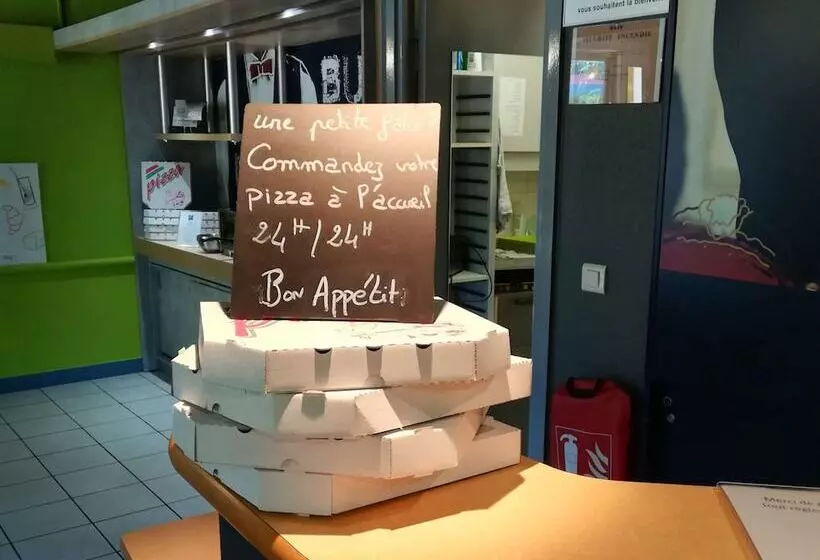 vous souhaitent la bienven
SÉCURITÉ INCENDIE
BU
une petite faim
Commandez votre
pizza à l'accueil
24H/24H
Bon Appétit
pizza
Merci de
tout règle